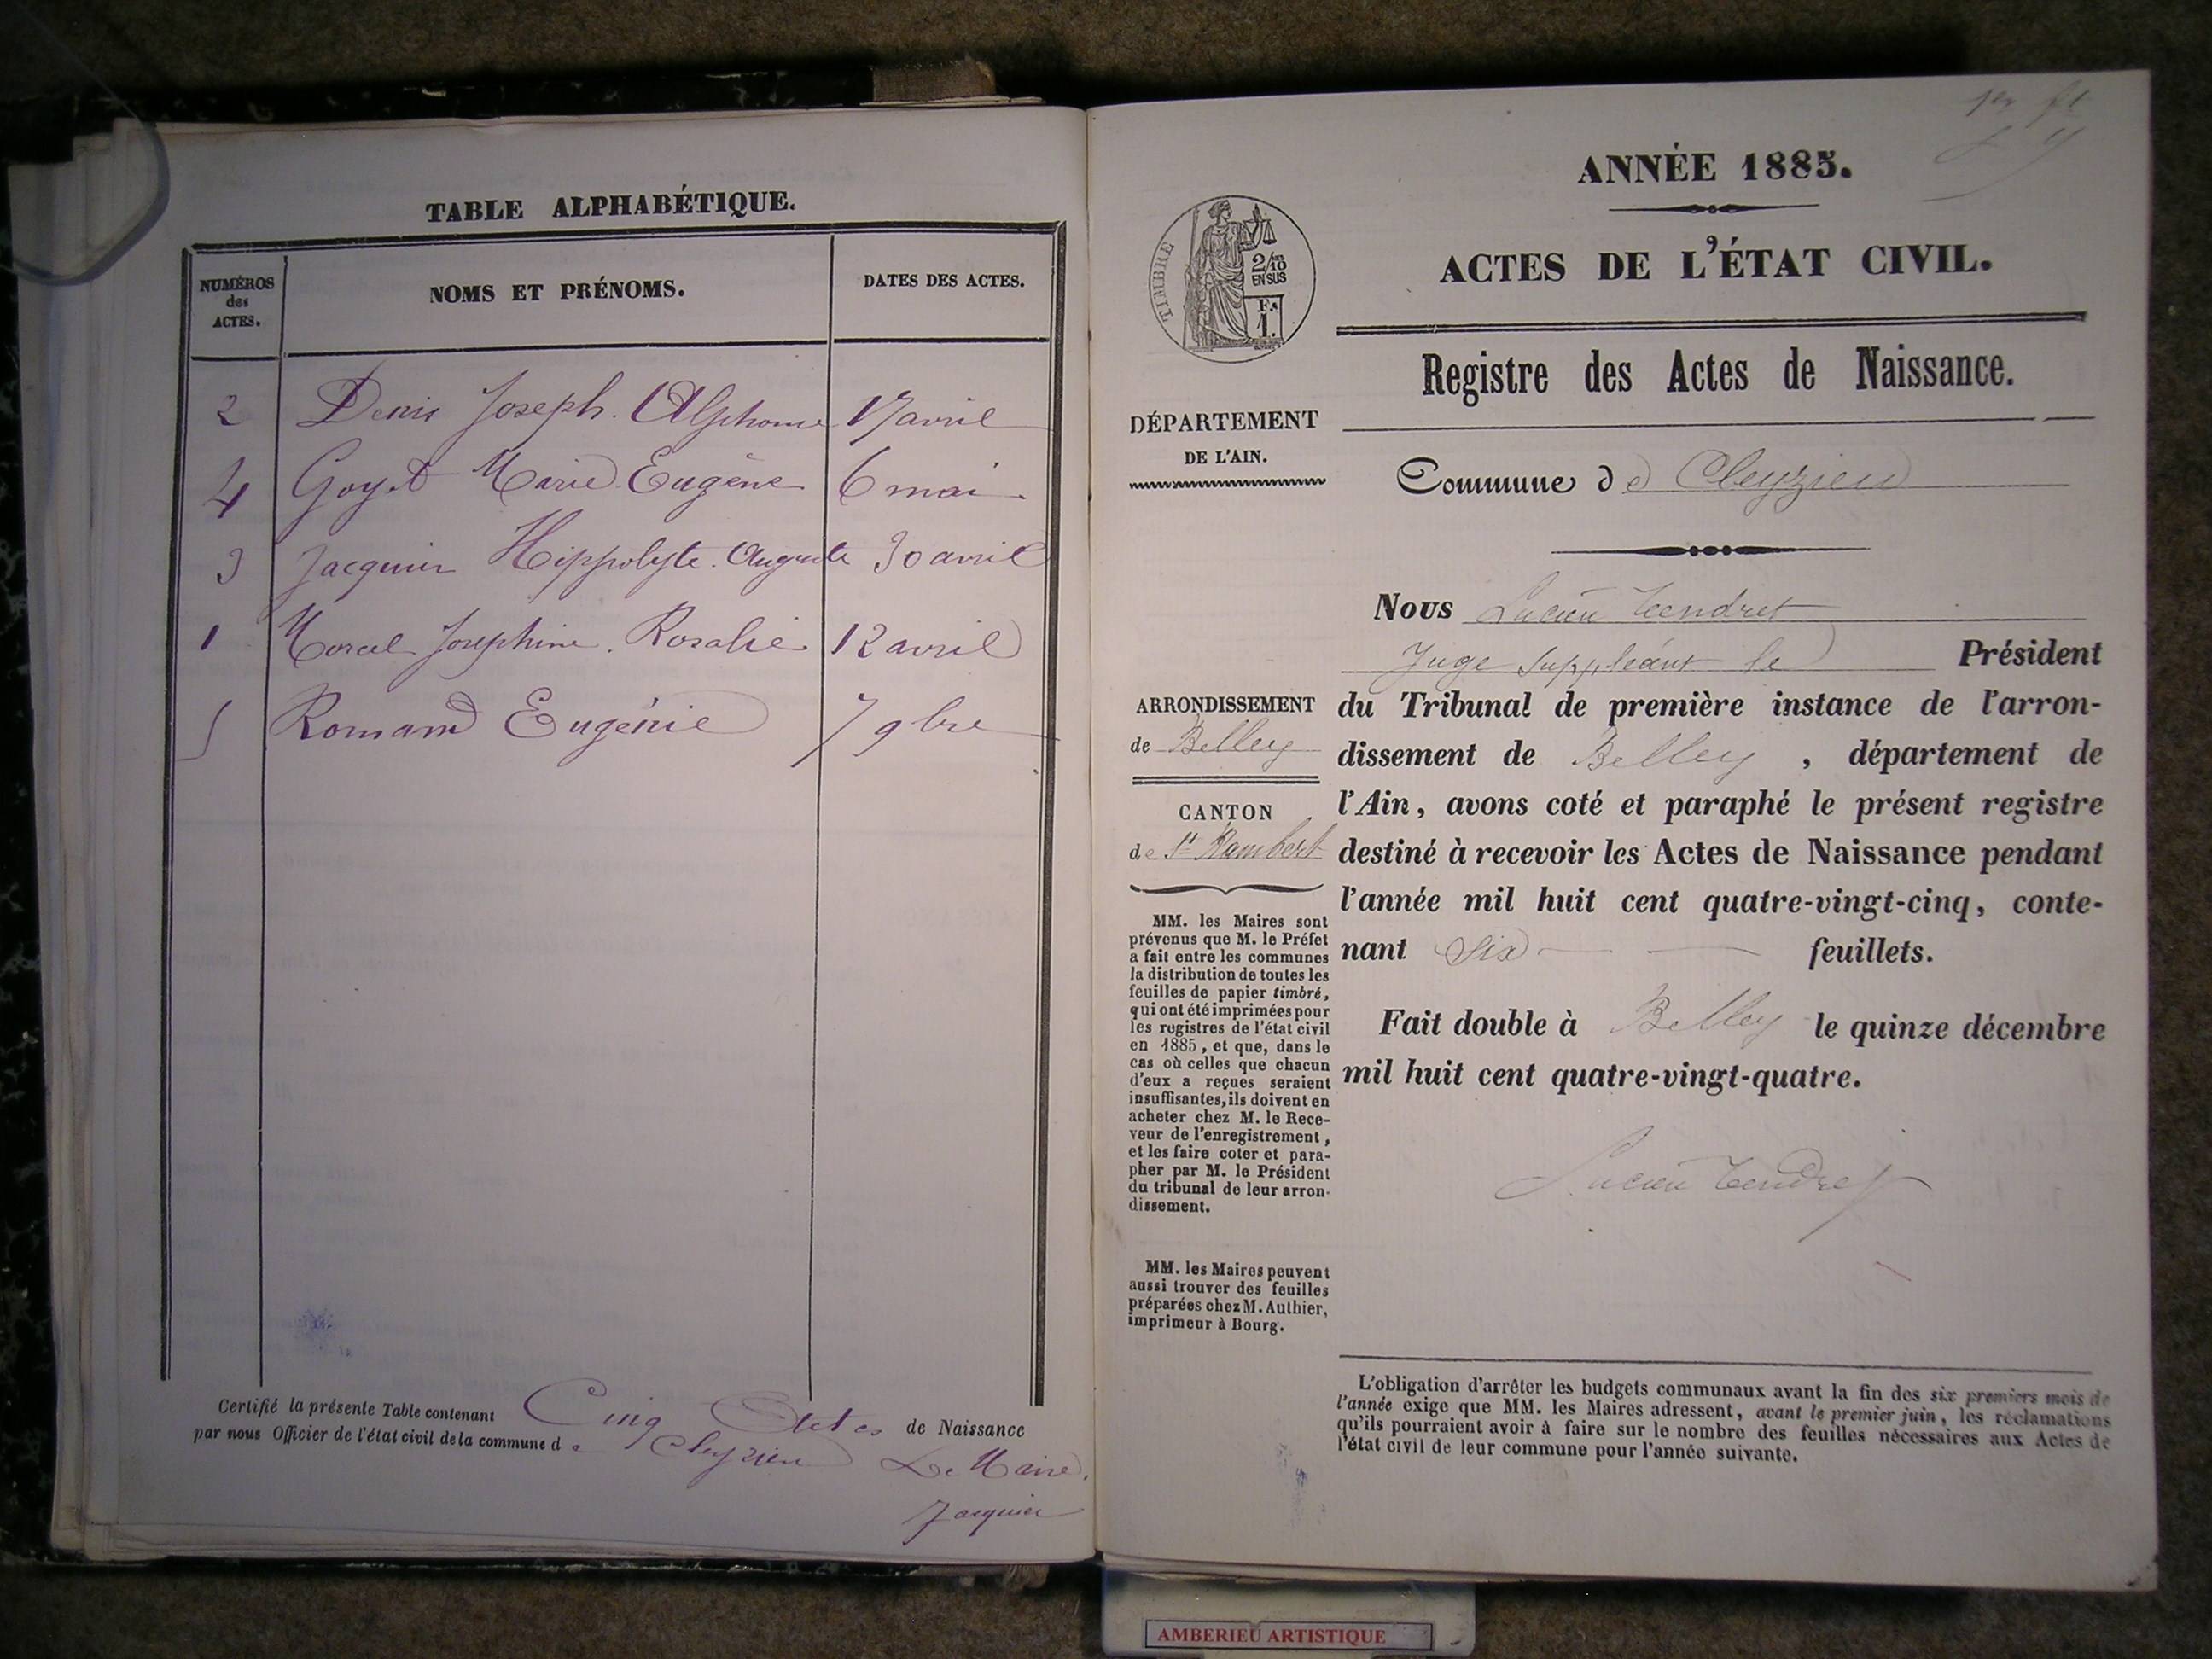 TABLE ALPHABÉTIQUE.
NUMÉROS
des
ACTES.
NOMS ET PRÉNOMS.
DATES DES ACTES.
2 Denis Joseph Alphonse 17 avril
4 Goyet Marie Eugène 6 mai
3 Jacquier Hippolyte Auguste 30 avril
1 Morcel Joséphine Rosalie 12 avril
5 Romand Eugénie 7 9bre
Certifié la présente Table contenant Cinq Actes de Naissance
par nous Officier de l'état civil de la commune de Cleyzieu Le Maire,
Jacquier
TIMBRE
2/10
EN SUS
F.
1.
DÉPARTEMENT
DE L'AIN.
ARRONDISSEMENT
de Belley
CANTON
de St Rambert
MM. les Maires sont
prévenus que M. le Préfet
a fait entre les communes
la distribution de toutes les
feuilles de papier timbré,
qui ont été imprimées pour
les registres de l'état civil
en 1885, et que, dans le
cas où celles que chacun
d'eux a reçues seraient
insuffisantes, ils doivent en
acheter chez M. le Rece-
veur de l'enregistrement,
et les faire coter et para-
pher par M. le Président
du tribunal de leur arron-
dissement.
MM. les Maires peuvent
aussi trouver des feuilles
préparées chez M. Authier,
imprimeur à Bourg.
ANNÉE 1885.
ACTES DE L'ÉTAT CIVIL.
Registre des Actes de Naissance.
Commune de Cleyzieu
Nous Lucien Tendret
Juge suppléant le Président
du Tribunal de première instance de l'arron-
dissement de Belley, département de
l'Ain, avons coté et paraphé le présent registre
destiné à recevoir les Actes de Naissance pendant
l'année mil huit cent quatre-vingt-cinq, conte-
nant six feuillets.
Fait double à Belley le quinze décembre
mil huit cent quatre-vingt-quatre.
Lucien Tendret
L'obligation d'arrêter les budgets communaux avant la fin des six premiers mois de
l'année exige que MM. les Maires adressent, avant le premier juin, les réclamations
qu'ils pourraient avoir à faire sur le nombre des feuilles nécessaires aux Actes de
l'état civil de leur commune pour l'année suivante.
AMBERIEU ARTISTIQUE